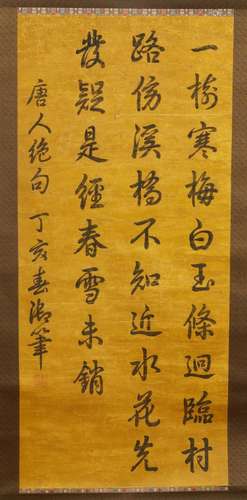 一樹寒梅白玉條迥臨村
路傍溪橋不知近水花先
發疑是經春雪未銷
唐人絕句 丁亥春御筆